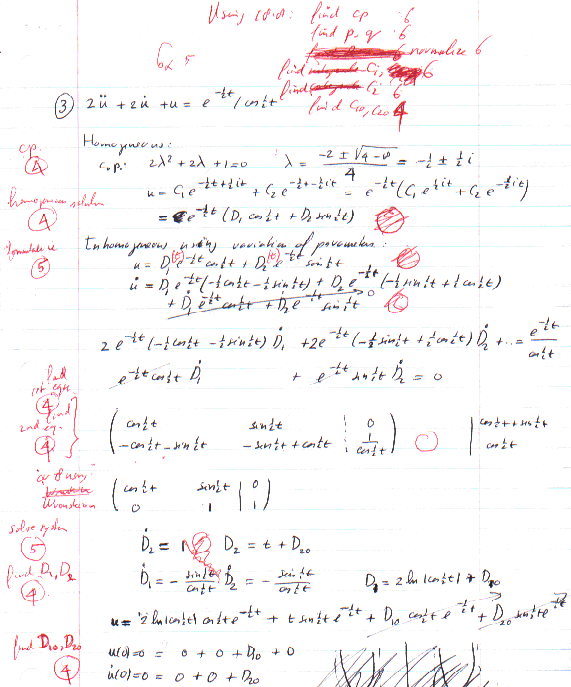 Using find cp 6
find p, q 6
6 normalize 6
find C₁, 6
find C₂ 6
find C₁₀, C₂₀ 4
6x 5
③ 2ü + 2u̇ + u = e^{-½t} / cos½t
c.p. ④
Homogeneous:
c.p.: 2λ² + 2λ + 1 = 0 λ = (-2 ± √(4 - 8)) / 4 = -½ ± ½i
u = C₁e^{-½t+½it} + C₂e^{-½t-½it} = e^{-½t}(C₁e^{½it} + C₂e^{-½it})
homogeneous solution ④
= e^{-½t}(D₁ cos½t + D₂ sin½t)
⑤
Inhomogeneous using variation of parameters:
u = D₁(t) e^{-½t} cos½t + D₂(t) e^{-½t} sin½t
u̇ = D₁ e^{-½t}(-½cos½t - ½sin½t) + D₂ e^{-½t}(-½sin½t + ½cos½t)
+ Ḋ₁ e^{-½t} cos½t + Ḋ₂ e^{-½t} sin½t 0
2e^{-½t}(-½cos½t - ½sin½t) Ḋ₁ + 2e^{-½t}(-½sin½t + ½cos½t) Ḋ₂ + … = e^{-½t} / cos½t
e^{-½t} cos½t Ḋ₁ + e^{-½t} sin½t Ḋ₂ = 0
find 1st eqn ④
find 2nd eq. ④
( cos½t sin½t | 0 ) | cos½t + sin½t
( -cos½t - sin½t -sin½t + cos½t | 1/cos½t ) | cos½t
or using Wronskian
( cos½t sin½t | 0 )
( 0 1 | 1 )
solve system ⑤
Ḋ₂ = 1 D₂ = t + D₂₀
find D₁, D₂ ④
Ḋ₁ = -(sin½t / cos½t) Ḋ₂ = -(sin½t / cos½t) D₁ = 2 ln|cos½t| + D₁₀
u = 2 ln|cos½t| cos½t e^{-½t} + t sin½t e^{-½t} + D₁₀ cos½t e^{-½t} + D₂₀ sin½t e^{-½t}
find D₁₀, D₂₀ ④
u(0) = 0 = 0 + 0 + D₁₀ + 0
u̇(0) = 0 = 0 + 0 + D₂₀